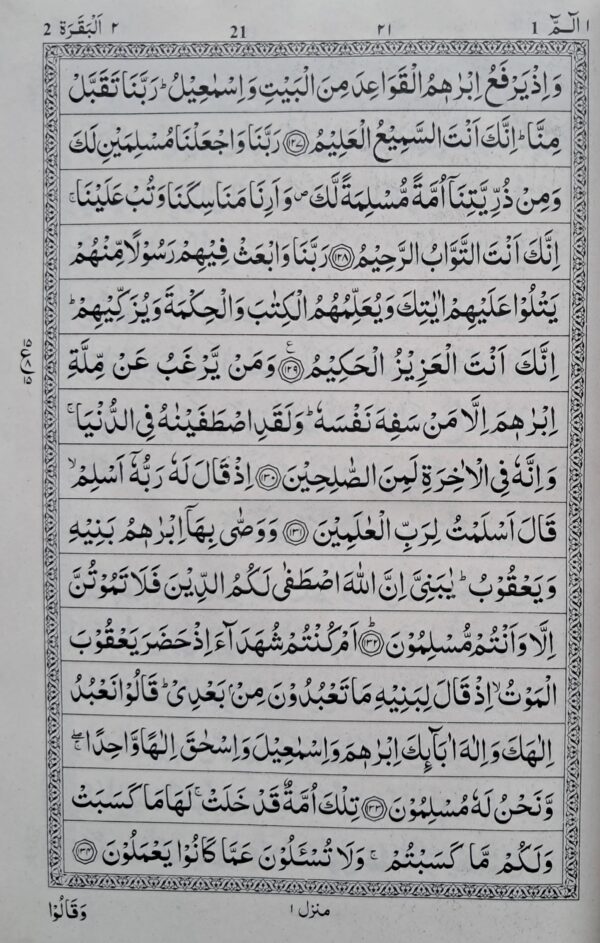 الٓمّٓ ١ 1 ٢١ 21 ٢ اَلْبَقَرَة 2
وَاِذْ يَرْفَعُ اِبْرٰهٖمُ الْقَوَاعِدَ مِنَ الْبَيْتِ وَاِسْمٰعِيْلُ ؕ رَبَّنَا تَقَبَّلْ
مِنَّا ؕ اِنَّكَ اَنْتَ السَّمِيْعُ الْعَلِيْمُ ﴿۱۲۷﴾ رَبَّنَا وَاجْعَلْنَا مُسْلِمَيْنِ لَكَ
وَمِنْ ذُرِّيَّتِنَاۤ اُمَّةً مُّسْلِمَةً لَّكَ ۪ وَاَرِنَا مَنَاسِكَنَا وَتُبْ عَلَيْنَا ۚ
اِنَّكَ اَنْتَ التَّوَّابُ الرَّحِيْمُ ﴿۱۲۸﴾ رَبَّنَا وَابْعَثْ فِيْهِمْ رَسُوْلًا مِّنْهُمْ
يَتْلُوْا عَلَيْهِمْ اٰيٰتِكَ وَيُعَلِّمُهُمُ الْكِتٰبَ وَالْحِكْمَةَ وَيُزَكِّيْهِمْ ؕ
اِنَّكَ اَنْتَ الْعَزِيْزُ الْحَكِيْمُ ﴿۱۲۹﴾ ع وَمَنْ يَّرْغَبُ عَنْ مِّلَّةِ
اِبْرٰهٖمَ اِلَّا مَنْ سَفِهَ نَفْسَهٗ ؕ وَلَقَدِ اصْطَفَيْنٰهُ فِى الدُّنْيَا ۚ
وَاِنَّهٗ فِى الْاٰخِرَةِ لَمِنَ الصّٰلِحِيْنَ ﴿۱۳۰﴾ اِذْ قَالَ لَهٗ رَبُّهٗۤ اَسْلِمْ ۙ
قَالَ اَسْلَمْتُ لِرَبِّ الْعٰلَمِيْنَ ﴿۱۳۱﴾ وَوَصّٰى بِهَاۤ اِبْرٰهٖمُ بَنِيْهِ
وَيَعْقُوْبُ ؕ يٰبَنِىَّ اِنَّ اللّٰهَ اصْطَفٰى لَكُمُ الدِّيْنَ فَلَا تَمُوْتُنَّ
اِلَّا وَاَنْتُمْ مُّسْلِمُوْنَ ﴿۱۳۲﴾ ؕ اَمْ كُنْتُمْ شُهَدَآءَ اِذْ حَضَرَ يَعْقُوْبَ
الْمَوْتُ ۙ اِذْ قَالَ لِبَنِيْهِ مَا تَعْبُدُوْنَ مِنْۢ بَعْدِىْ ؕ قَالُوْا نَعْبُدُ
اِلٰهَكَ وَاِلٰهَ اٰبَآئِكَ اِبْرٰهٖمَ وَاِسْمٰعِيْلَ وَاِسْحٰقَ اِلٰهًا وَّاحِدًا ۖۚ
وَّنَحْنُ لَهٗ مُسْلِمُوْنَ ﴿۱۳۳﴾ تِلْكَ اُمَّةٌ قَدْ خَلَتْ ۚ لَهَا مَا كَسَبَتْ
وَلَكُمْ مَّا كَسَبْتُمْ ۚ وَلَا تُسْـَٔلُوْنَ عَمَّا كَانُوْا يَعْمَلُوْنَ ﴿۱۳۴﴾
منزل ١
وَقَالُوْا